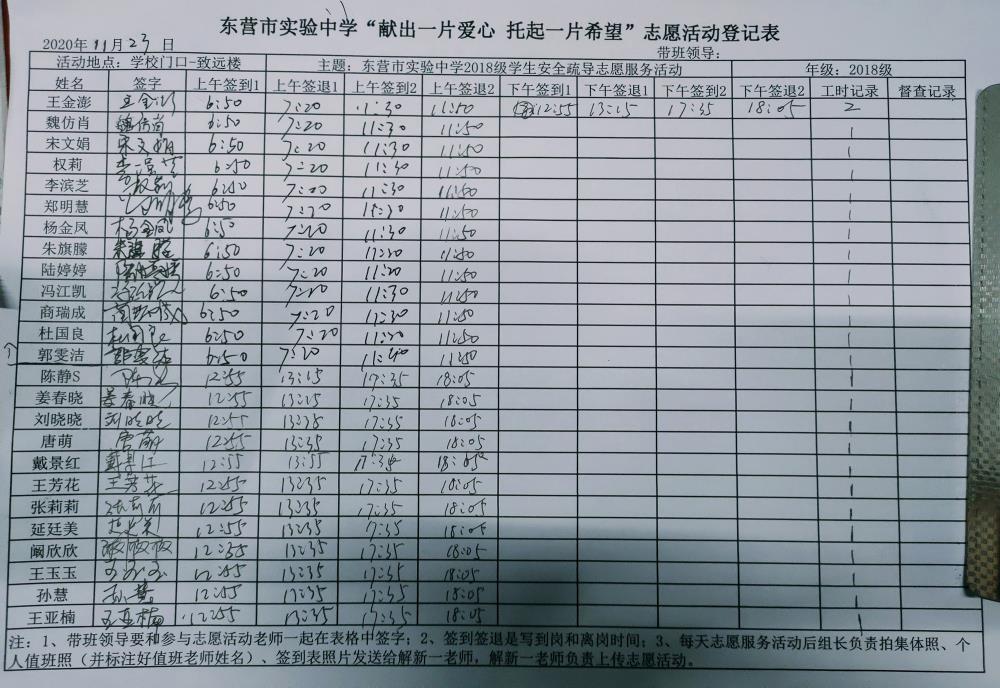 东营市实验中学“献出一片爱心 托起一片希望”志愿活动登记表
2020年11月23日 带班领导：
活动地点：学校门口-致远楼 主题：东营市实验中学2018级学生安全疏导志愿服务活动 年级：2018级
姓名 签字 上午签到1 上午签退1 上午签到2 上午签退2 下午签到1 下午签退1 下午签到2 下午签退2 工时记录 督查记录
王金澎 王金澎 6:50 7:20 11:30 11:50 12:55 13:15 17:35 18:05 2
魏仿肖 魏仿肖 6:50 7:20 11:30 11:50 1
宋文娟 宋文娟 6:50 7:20 11:30 11:50 1
权莉 6:50 7:20 11:30 11:50 1
李滨芝 6:50 7:20 11:30 11:50 1
郑明慧 6:50 7:20 11:30 11:50 1
杨金凤 杨金凤 6:50 7:20 11:30 11:50 1
朱旗朦 朱旗朦 6:50 7:20 11:50 1
陆婷婷 6:50 7:20 11:20 11:50 1
冯江凯 6:50 7:20 11:30 11:50 1
商瑞成 6:50 7:20 11:30 11:50 1
杜国良 杜国良 6:50 7:20 11:50 1
郭雯洁 郭雯洁 6:50 7:20 11:50 1
陈静S 12:55 13:15 17:35 18:05 1
姜春晓 姜春晓 12:55 17:35 18:05 1
刘晓晓 刘晓晓 12:55 13:35 17:35 18:05 1
唐萌 唐萌 12:55 13:35 17:35 18:05 1
戴景红 戴景红 12:55 13:55 17:35 18:05 1
王芳花 王芳花 12:55 13:35 17:35 18:05 1
张莉莉 张莉莉 12:55 13:35 17:35 18:05 1
延廷美 12:55 13:35 18:05 1
阚欣欣 13:35 17:35 18:05 1
王玉玉 12:55 13:35 17:35 18:05 1
孙慧 孙慧 12:55 13:35 17:35 18:05 1
王亚楠 王亚楠 12:55 13:35 17:35 18:05 1
注：1、带班领导要和参与志愿活动老师一起在表格中签字；2、签到签退是写到岗和离岗时间；3、每天志愿服务活动后组长负责拍集体照、个
人值班照（并标注好值班老师姓名）、签到表照片发送给解新一老师，解新一老师负责上传志愿活动。